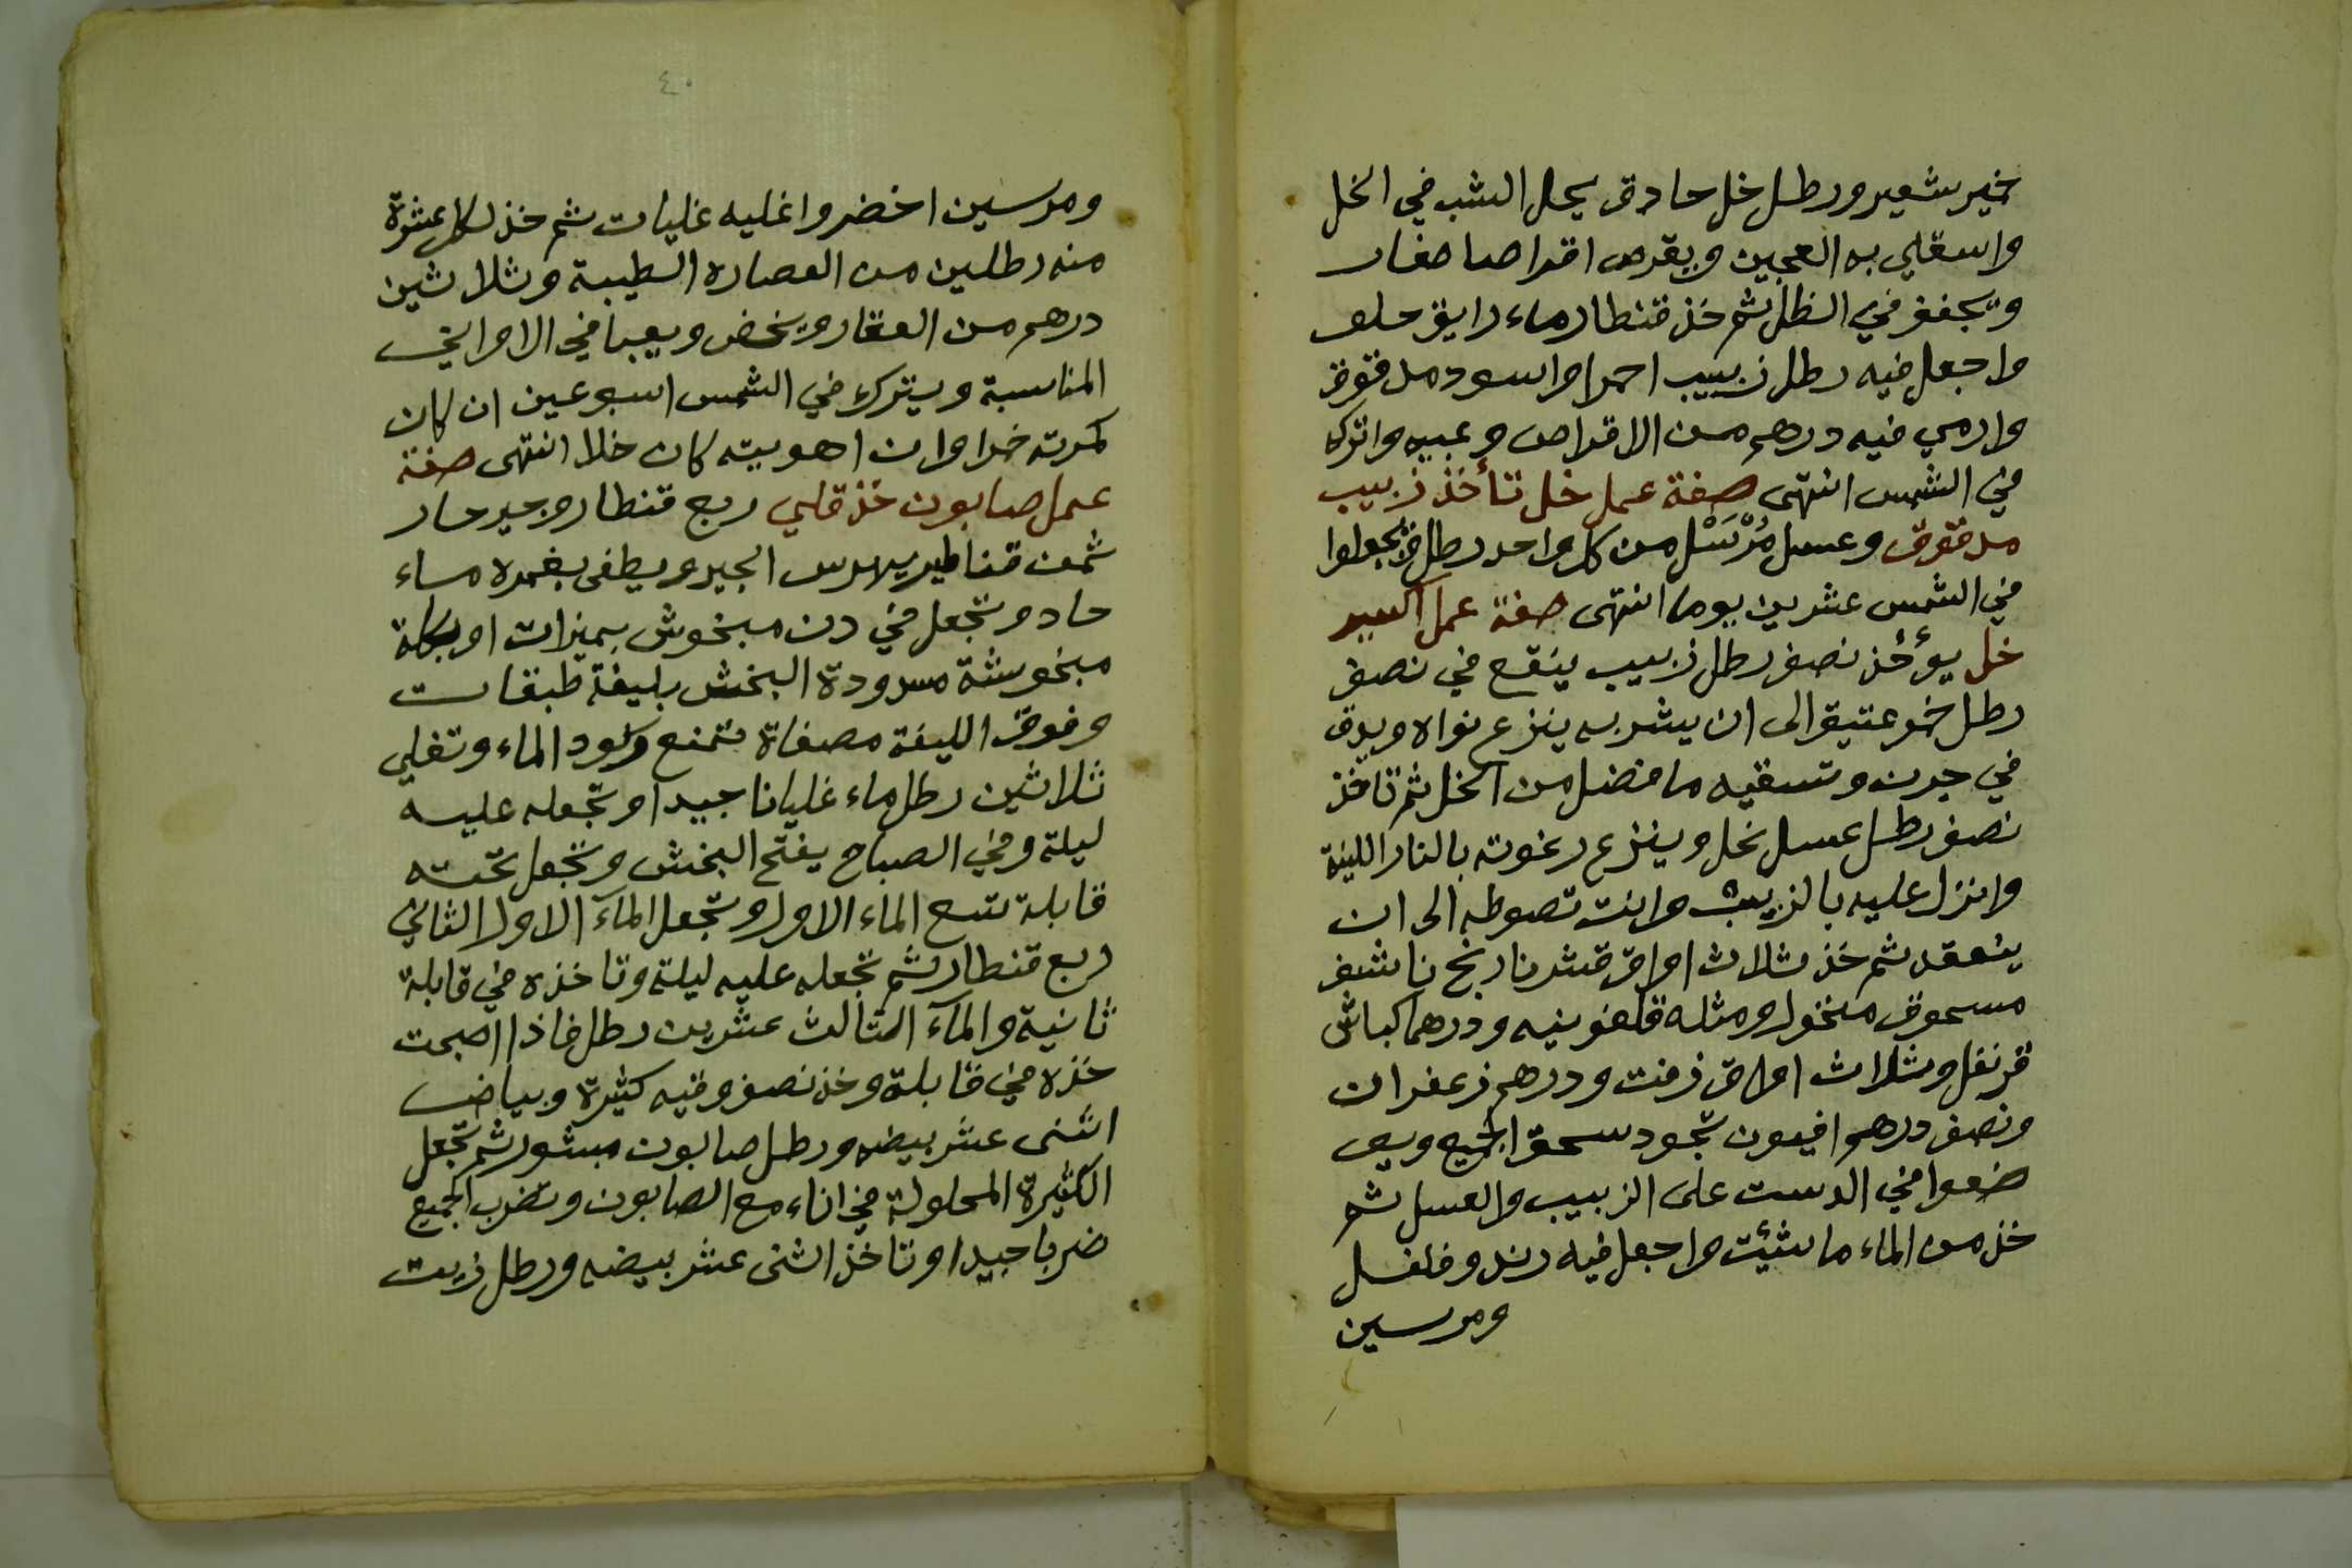 خمير شعير ورطل خل حادق يحل الشب في الخل
واسقلي به العجين ويقرص اقراصا صغار
ويجفف في الظل ثم خذ قنطار ماء رايق حلو
واجعل فيه رطل زبيب احمر او اسود مدقوق
وارمي فيه درهم من الاقراص وعبيه واتركه
في الشمس انتهى صفة عمل خل تأخذ زبيب
مدقوق وعسل مُرْسَل من كل واحد رطل ويجعلوا
في الشمس عشرين يوما انتهى صفة عمل اكسير
خل يؤخذ نصف رطل زبيب ينقع في نصف
رطل خمر عتيق الى ان يشربه ينزع نواه ويدق
في جرن وتسقيه ما فضل من الخل ثم تاخذ
نصف رطل عسل نحل وينزع رغوته بالنار اللينة
وانزل عليه بالزبيب وانت تصوطه الى ان
ينعقد ثم خذ ثلاث اواق قشر نارنج ناشف
مسحوق منخول ومثله قلفونيه ودرهم كباش
قرنفل وثلاث اواق زفت ودرهم زعفران
ونصف درهم افيون تجود سحق الجميع ويو
ضعوا في الدست على الزبيب والعسل ثم
خذ من الماء ما شئت واجعل فيه رند وفلفل
ومرسين
٤٠
ومرسين اخضر واغليه غليات ثم خذ لكل عشرة
منه رطلين من العصاره الطيبة وثلاثين
درهم من العقار ويخض ويعبا في الاواني
المناسبة ويترك في الشمس اسبوعين ان كان
كمرته خمرا وان اهويته كان خلا انتهى صفة
عمل صابون خذ قلي ربع قنطار وجير حار
ثمن قناطير يهرس الجير ويطفى بغمره ماء
حاد وتجعل في دن مبخوش بميزات او بكلة
مبخوشة مسدودة البخش بليفة طبقات
وفوق الليفة مصفاة تمنع وكود الماء وتغلي
ثلاثين رطل ماء غليانا جيدا وتجعله عليه
ليلة وفي الصباح يفتح البخش وتجعل تحته
قابلة تسع الماء الاول وتجعل المآء الاول الثاني
ربع قنطار ثم تجعله عليه ليلة وتاخذه في قابلة
ثانية والمآء الثالث عشرين رطل فاذا اصبحت
خذه في قابلة وخذ نصف وقيه كثيرة وبياض
اثنى عشر بيضه ورطل صابون مبشور ثم تجعل
الكثيرة المحلولة في اناء مع الصابون وتضرب الجميع
ضربا جيدا وتاخذ اثنى عشر بيضه ورطل زيت